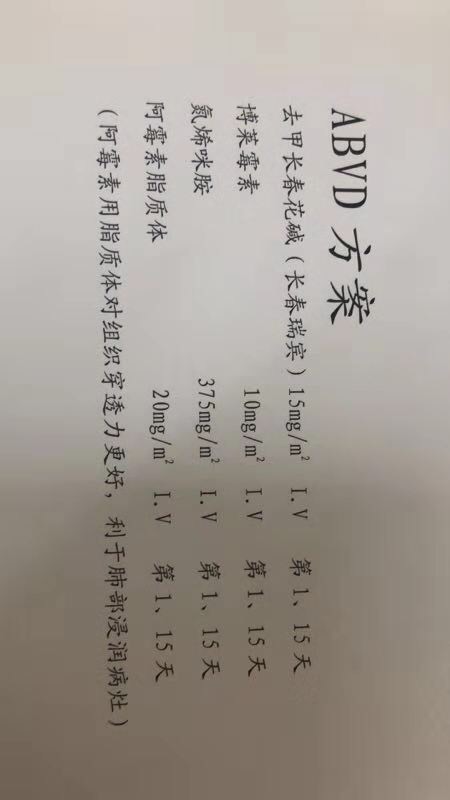 ABVD 方案
去甲长春花碱（长春瑞宾）15mg/m² I.V 第 1、15 天
博莱霉素 10mg/m² I.V 第 1、15 天
氮烯咪胺 375mg/m² I.V 第 1、15 天
阿霉素脂质体 20mg/m² I.V 第 1、15 天
（阿霉素用脂质体对组织穿透力更好，利于肺部浸润病灶）